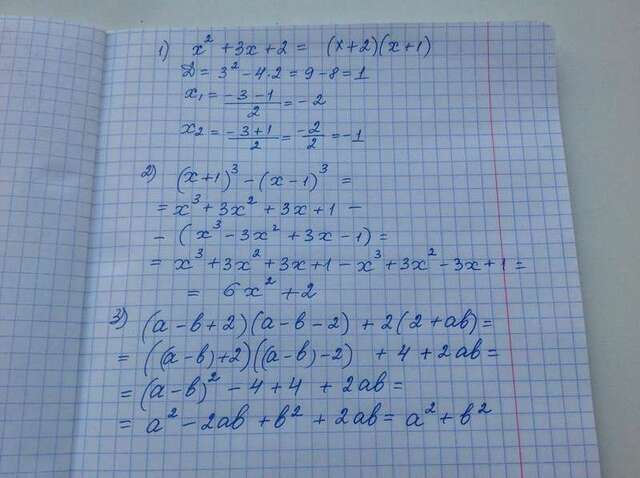 1) x² + 3x + 2 = (x+2)(x+1)
D = 3² - 4·2 = 9 - 8 = 1
x₁ = (-3-1)/2 = -2
x₂ = (-3+1)/2 = -2/2 = -1
2) (x+1)³ - (x-1)³ =
= x³ + 3x² + 3x + 1 -
- (x³ - 3x² + 3x - 1) =
= x³ + 3x² + 3x + 1 - x³ + 3x² - 3x + 1 =
= 6x² + 2
3) (a-в+2)(a-в-2) + 2(2+aв) =
= ((a-в)+2)((a-в)-2) + 4 + 2aв =
= (a-в)² - 4 + 4 + 2aв =
= a² - 2aв + в² + 2aв = a² + в²